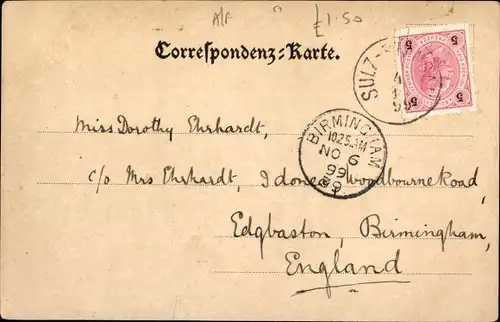 A/F £1.50
Correspondenz-Karte.
5 5
5 5
SULZ-
4
99
BIRMINGHAM
10.25 AM
NO 6
99
Miss Dorothy Ehrhardt,
c/o Mrs Ehrhardt, Idone, Woodbourne Road,
Edgbaston, Birmingham,
England